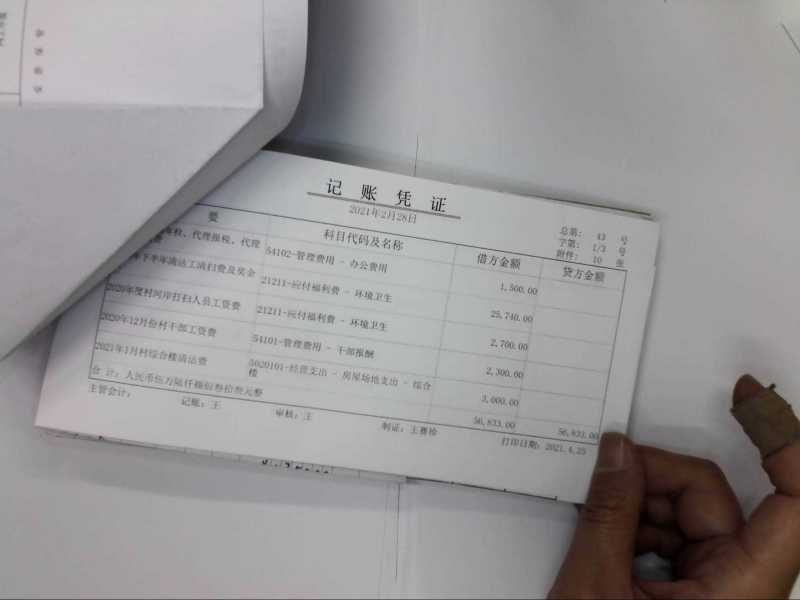 记账凭证
2021年2月28日
总第: 43 号
字第: 1/3 号
附件: 10 张
要 科目代码及名称 借方金额 贷方金额
、代理报税、代理
费 54102-管理费用 - 办公费用 1,500.00
年下半年清洁工清扫费及奖金 21211-应付福利费 - 环境卫生 25,740.00
2020年度村河岸打扫人员工资费 21211-应付福利费 - 环境卫生 2,700.00
2020年12月份村干部工资费 54101-管理费用 - 干部报酬 2,300.00
2021年1月村综合楼清洁费 5020101-经营支出 - 房屋场地支出 - 综合
楼 3,000.00
合 计: 人民币伍万陆仟捌佰叁拾叁元整 56,833.00 56,833.00
主管会计: 记账: 王 审核: 王 制证: 王赛珍 打印日期: 2021.4.25